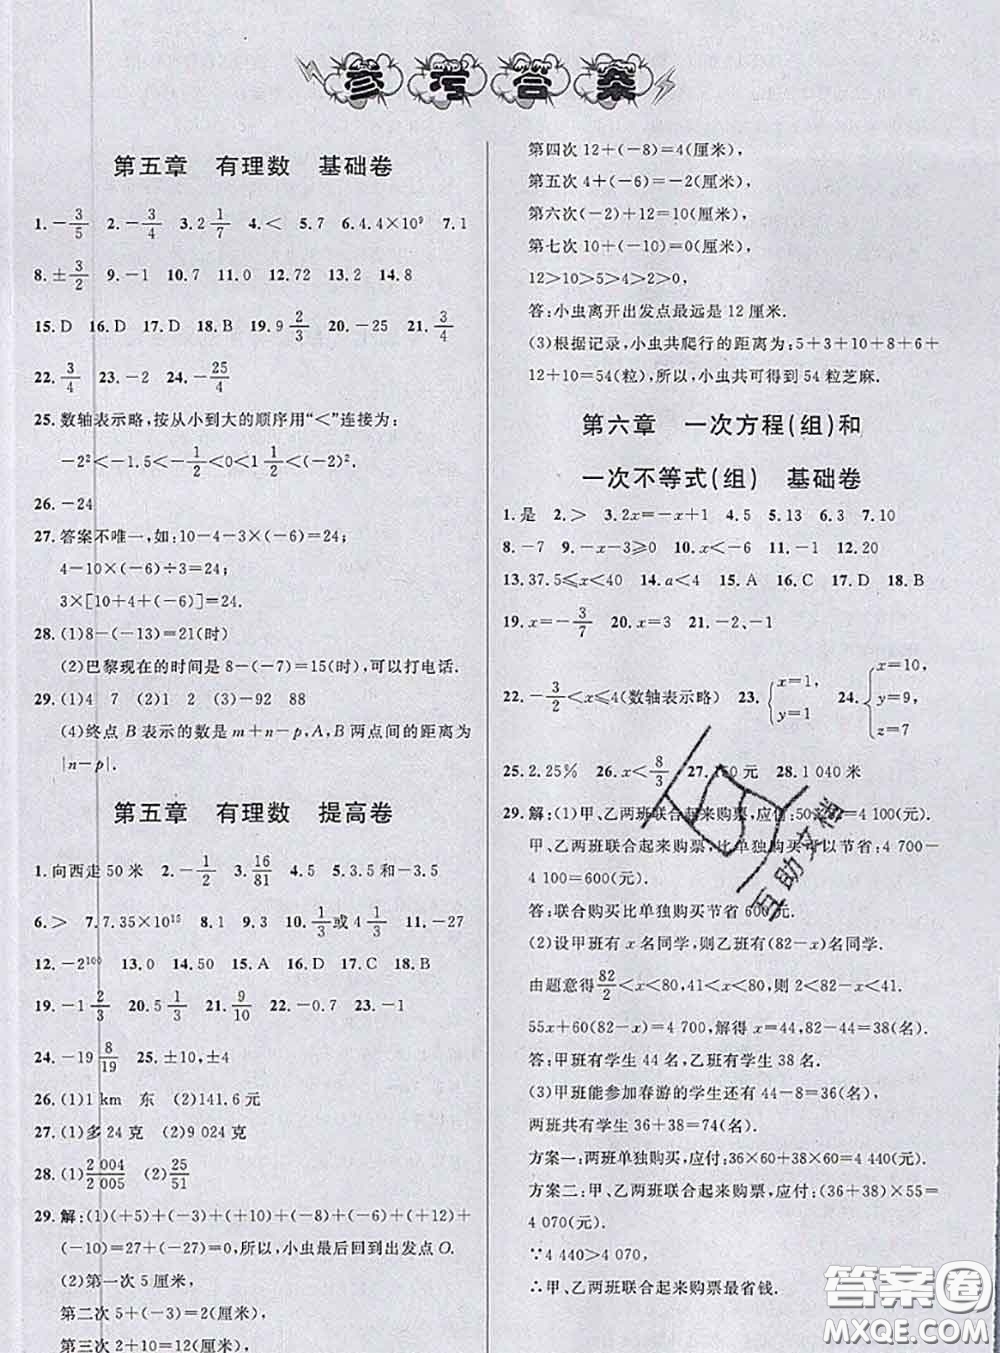 参考答案
第五章 有理数 基础卷
1.-3/5 2.-3/4 3.2 1/7 4.< 5.7 6.4.4×10⁹ 7.1
8.±3/2 9.-1 10.7 11.0 12.72 13.2 14.8
15.D 16.D 17.D 18.B 19.9 2/3 20.-25 21.3/4
22.3/4 23.-2 24.-25/4
25.数轴表示略,按从小到大的顺序用“<”连接为:
-2²<-1.5<-1/2<0<1 1/2<(-2)².
26.-24
27.答案不唯一,如:10-4-3×(-6)=24;
4-10×(-6)÷3=24;
3×[10+4+(-6)]=24.
28.(1)8-(-13)=21(时)
(2)巴黎现在的时间是8-(-7)=15(时),可以打电话.
29.(1)4 7 (2)1 2 (3)-92 88
(4)终点B表示的数是m+n-p,A、B两点间的距离为
|n-p|.
第五章 有理数 提高卷
1.向西走50米 2.-1/2 3.16/81 4.1 5.3.5和-3.5
6.> 7.7.35×10¹⁵ 8.1 9.3 10.1/3或4 1/3 11.-27
12.-2¹⁰⁰ 13.0 14.50 15.A 16.D 17.C 18.B
19.-1 2/3 20.5 1/3 21.9/10 22.-0.7 23.-1
24.-19 8/19 25.±10,±4
26.(1)1 km 东 (2)141.6元
27.(1)多24克 (2)9 024克
28.(1)2 004/2 005 (2)25/51
29.解:(1)(+5)+(-3)+(+10)+(-8)+(-6)+(+12)+
(-10)=27+(-27)=0,所以,小虫最后回到出发点O.
(2)第一次5厘米,
第二次5+(-3)=2(厘米),
第三次2+10=12(厘米),
第四次12+(-8)=4(厘米),
第五次4+(-6)=-2(厘米),
第六次(-2)+12=10(厘米),
第七次10+(-10)=0(厘米),
12>10>5>4>2>0,
答:小虫离开出发点最远是12厘米.
(3)根据记录,小虫共爬行的距离为:5+3+10+8+6+
12+10=54(粒),所以,小虫共可得到54粒芝麻.
第六章 一次方程(组)和
一次不等式(组) 基础卷
1.是 2.> 3.2x=-x+1 4.5 5.13 6.3 7.10
8.-7 9.-x-3≥0 10.x<-6 11.-1 12.20
13.37.5≤x<40 14.a<4 15.A 16.C 17.D 18.B
19.x=-3/7 20.x=3 21.-2、-1
22.-3/2<x≤4(数轴表示略) 23.{x=1, y=1 24.{x=10, y=9, z=7
25.2.25% 26.x<8/3 27.50元 28.1 040米
29.解:(1)甲、乙两班联合起来购票,应付:50×82=4 100(元).
甲、乙两班联合起来购票,比单独购买可以节省:4 700-
4 100=600(元).
答:联合购买比单独购买节省600元.
(2)设甲班有x名同学,则乙班有(82-x)名同学.
由题意得82/2<x<80,41<x<80,则2<82-x<41.
55x+60(82-x)=4 700,解得x=44,82-44=38(名).
答:甲班有学生44名,乙班有学生38名.
(3)甲班能参加春游的学生还有44-8=36(名).
两班共有学生36+38=74(名).
方案一:两班单独购买,应付:36×60+38×60=4 440(元).
方案二:甲、乙两班联合起来购票,应付:(36+38)×55=
4 070(元).
∵4 440>4 070,
∴甲、乙两班联合起来购票最省钱.
互助文档
答案圈
MXQE.COM